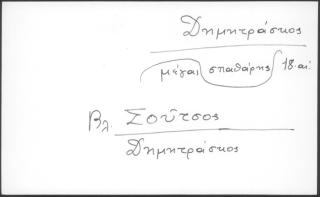 Δημητράσκος
μέγας σπαθάρης 18 αἰ.
Βλ. Σοῦτσος
Δημητράσκος